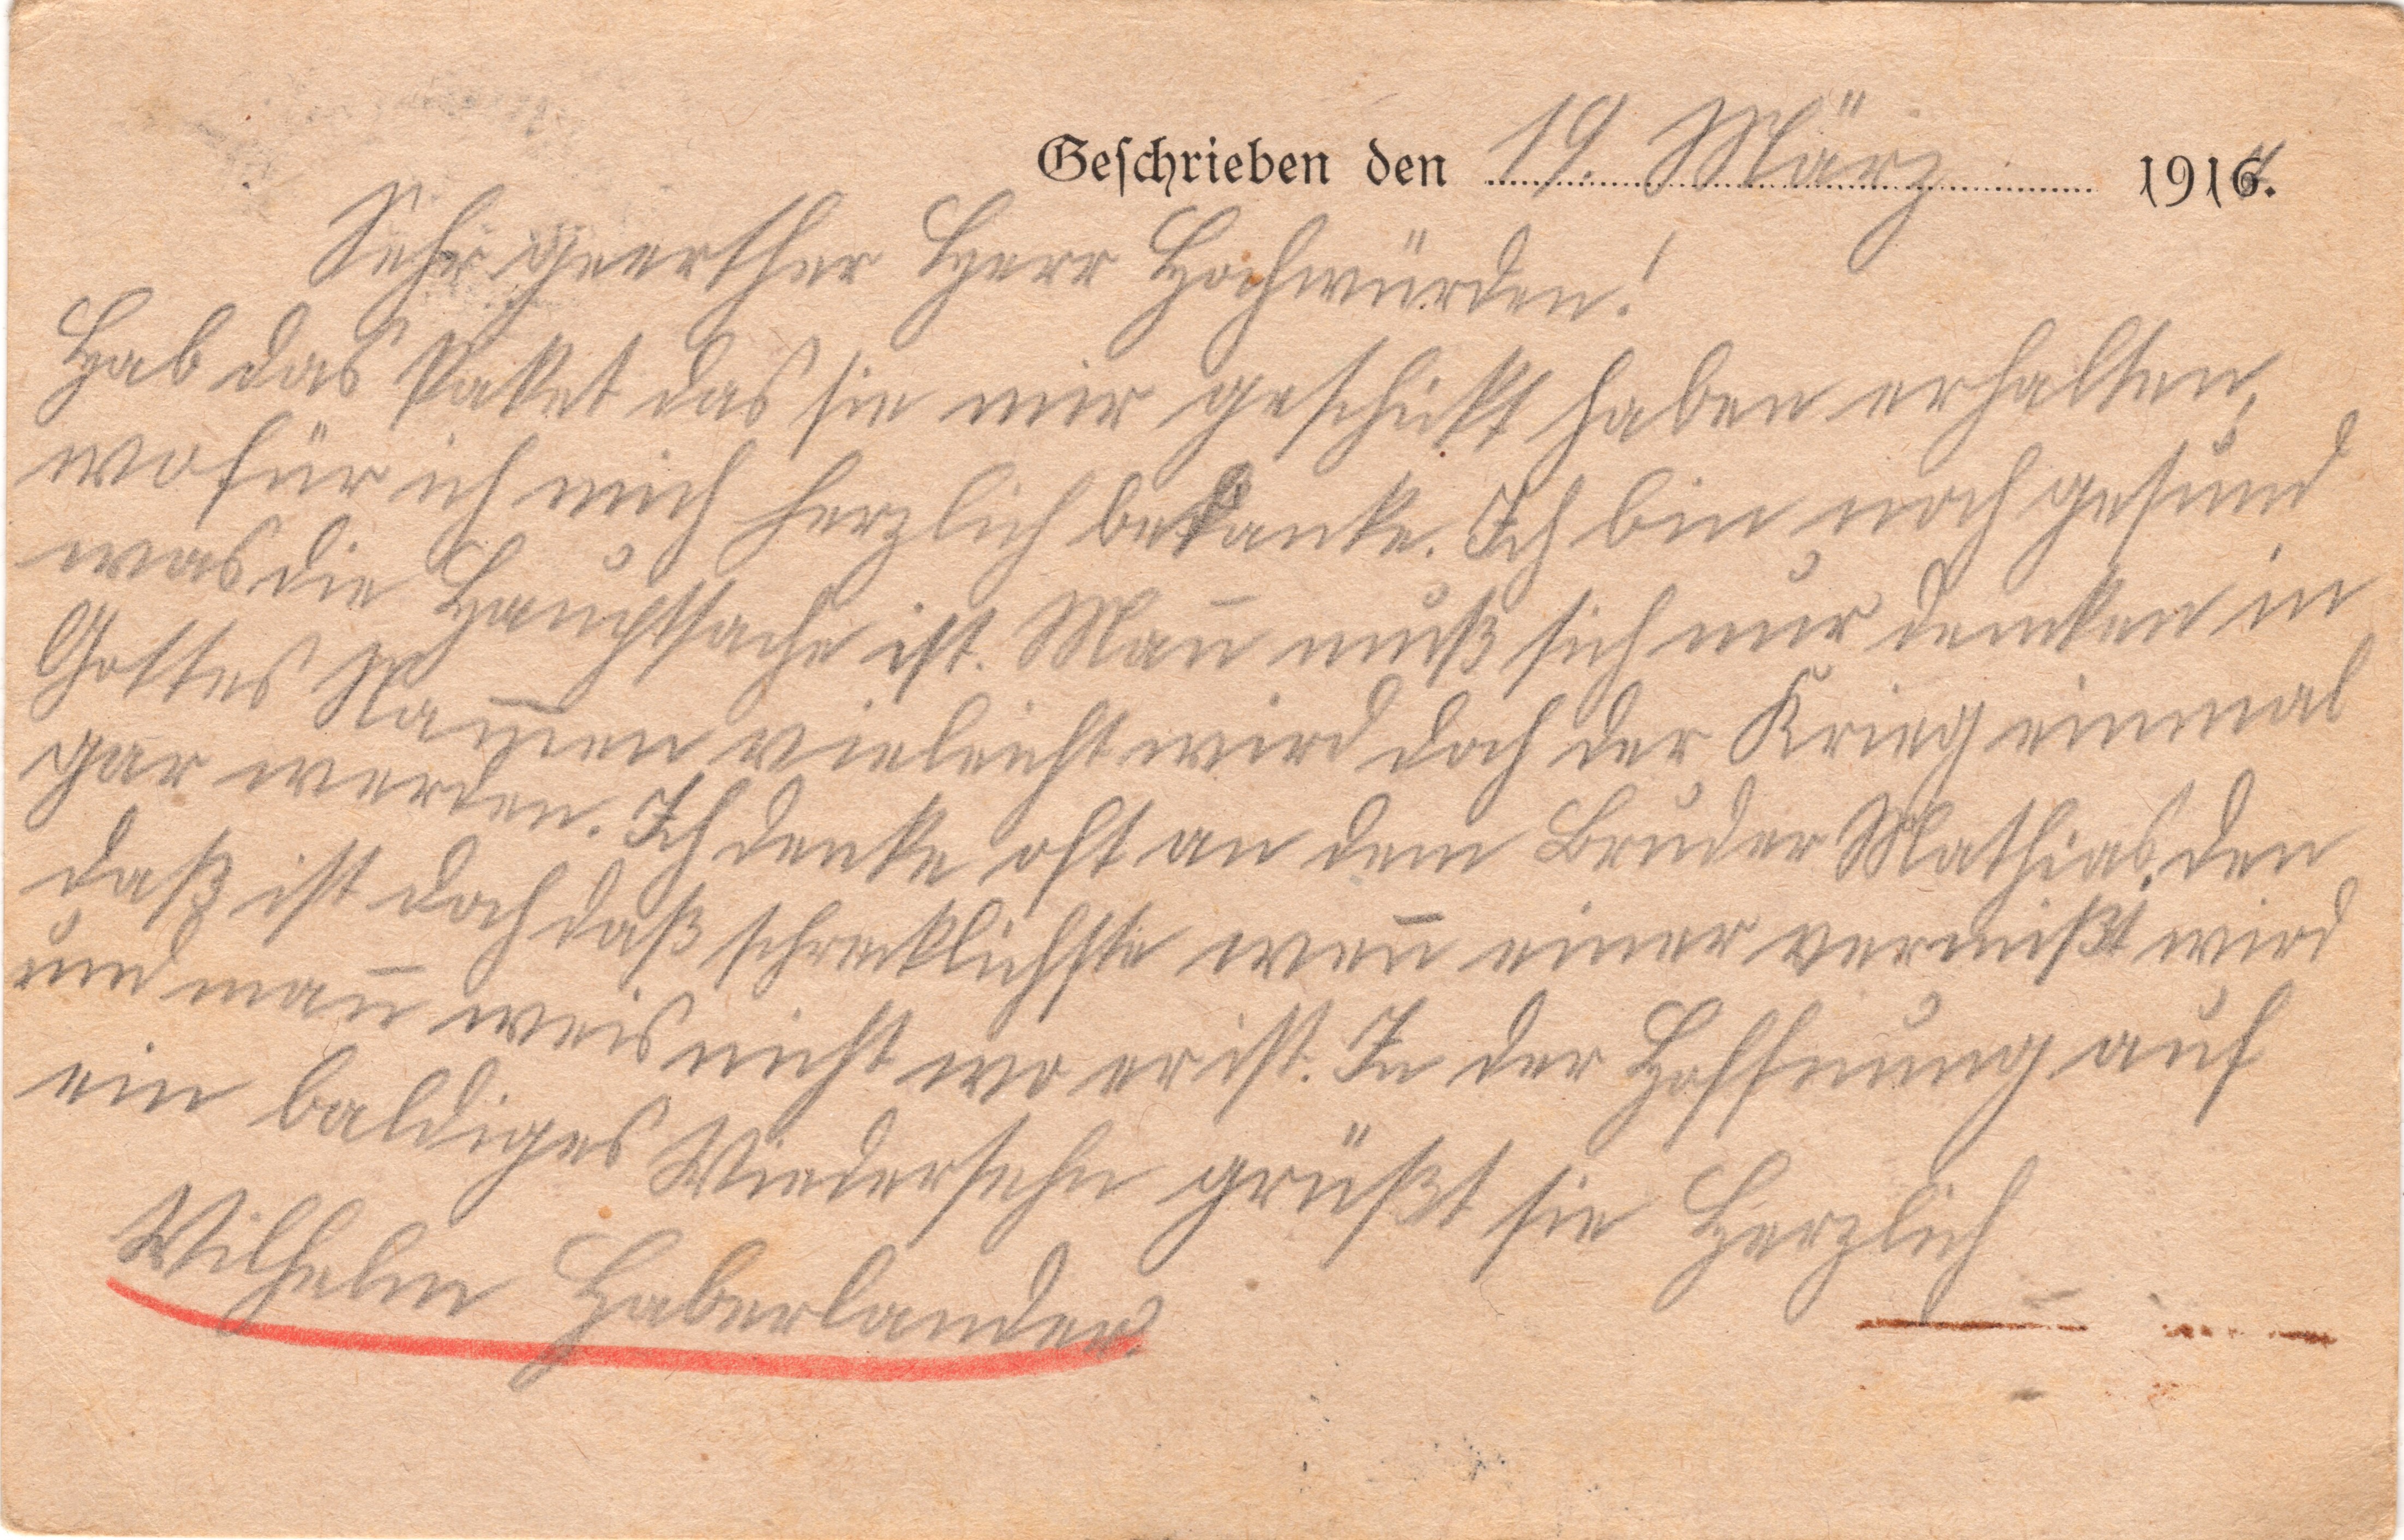 Geschrieben den 19. März 1917.
Sehr geerther Herr Hochwürden!
Hab das Paket das sie mir geschickt haben erhalten,
wofür ich mich herzlich bedanke. Ich bin noch gesund
was die Hauptsache ist. Man̄ muß sich nur denken in
Gottes Nam̄en vieleicht wird doch der Krieg einmal
gar werden. Ich denke oft an dem Bruder Mathias, den
daß ist doch daß schrecklichste wen̄ einer vermißt wird
und man̄ weis nicht wo er ist. In der Hoffnung auf
ein baldiges Wiedersehn grüßt sie Herzlich
Wilhelm Haberlander